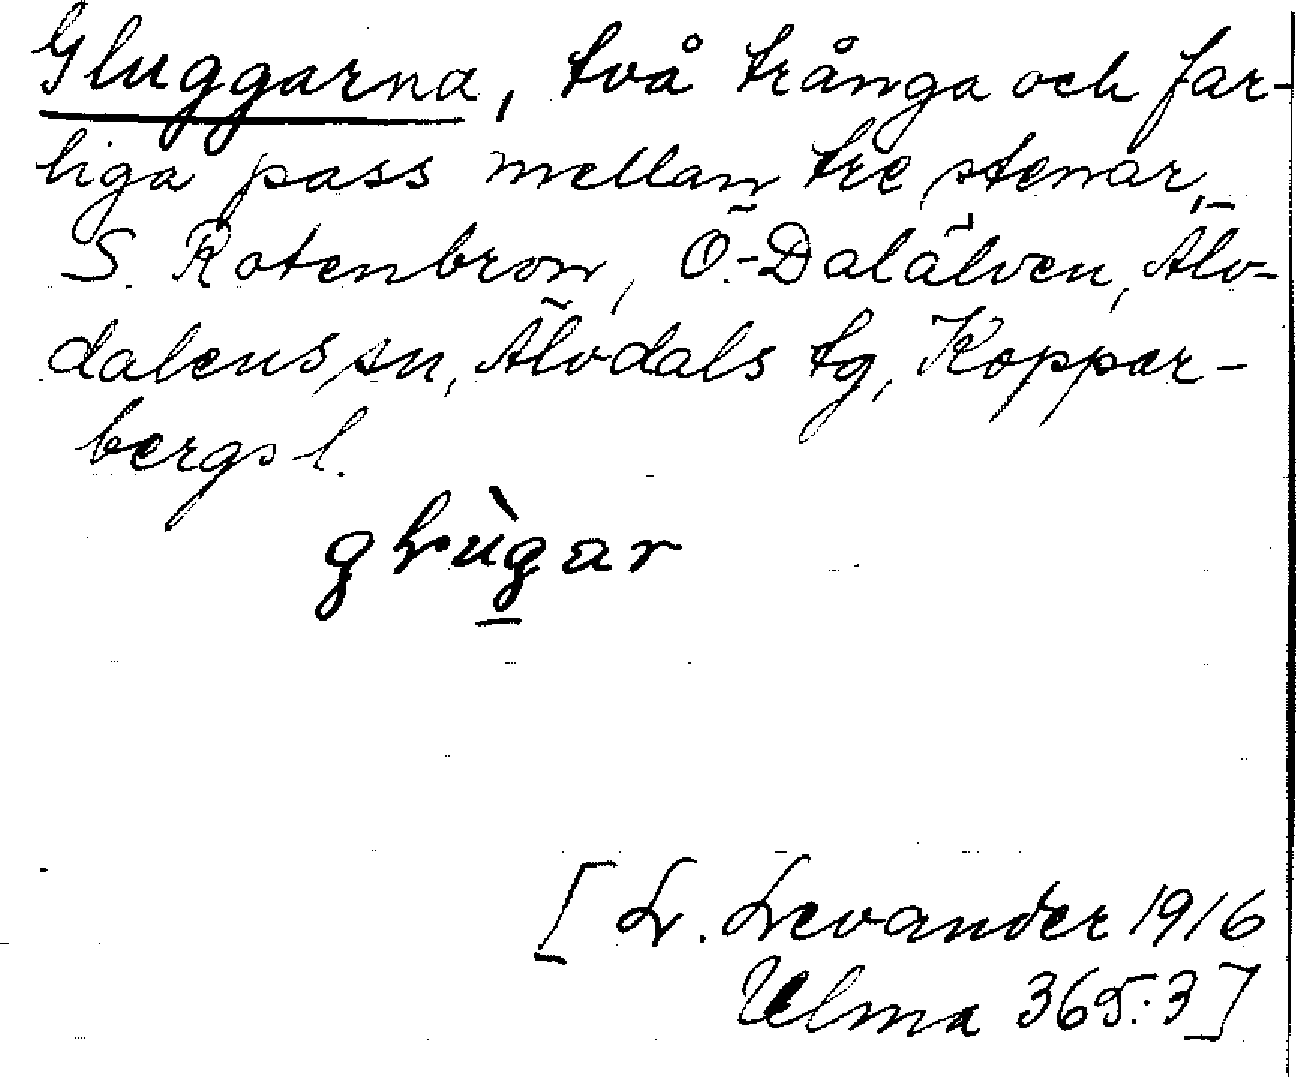 Gluggarna, två trånga och far-
liga pass mellan tre stenar,
S. Rotenbron, Ö.-Dalälven, Älv-
dalens sn, Älvdals tg, Koppar-
bergs l.
gLùgar
[L. Levander 1916
Ulma 365:3]